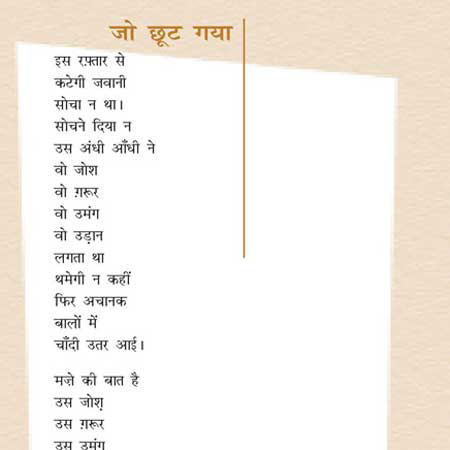 जो छूट गया
इस रफ़्तार से
कटेगी जवानी
सोचा न था।
सोचने दिया न
उस अंधी आँधी ने
वो जोश
वो ग़रूर
वो उमंग
वो उड़ान
लगता था
थमेगी न कहीं
फिर अचानक
बालों में
चाँदी उतर आई।
मज़े की बात है
उस जोश़
उस ग़रूर
उस उमंग